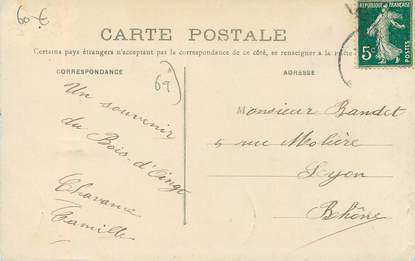 60 €
CARTE POSTALE
Certains pays étrangers n'acceptant pas la correspondance de ce côté, se renseigner à la
CORRESPONDANCE
ADRESSE
69
REPUBLIQUE FRANÇAISE
5c
POSTES
Un souvenir
du Bois-d'Oingt
Chavanne
Camille
Monsieur Bandet
5 rue Molière
Lyon
Rhône